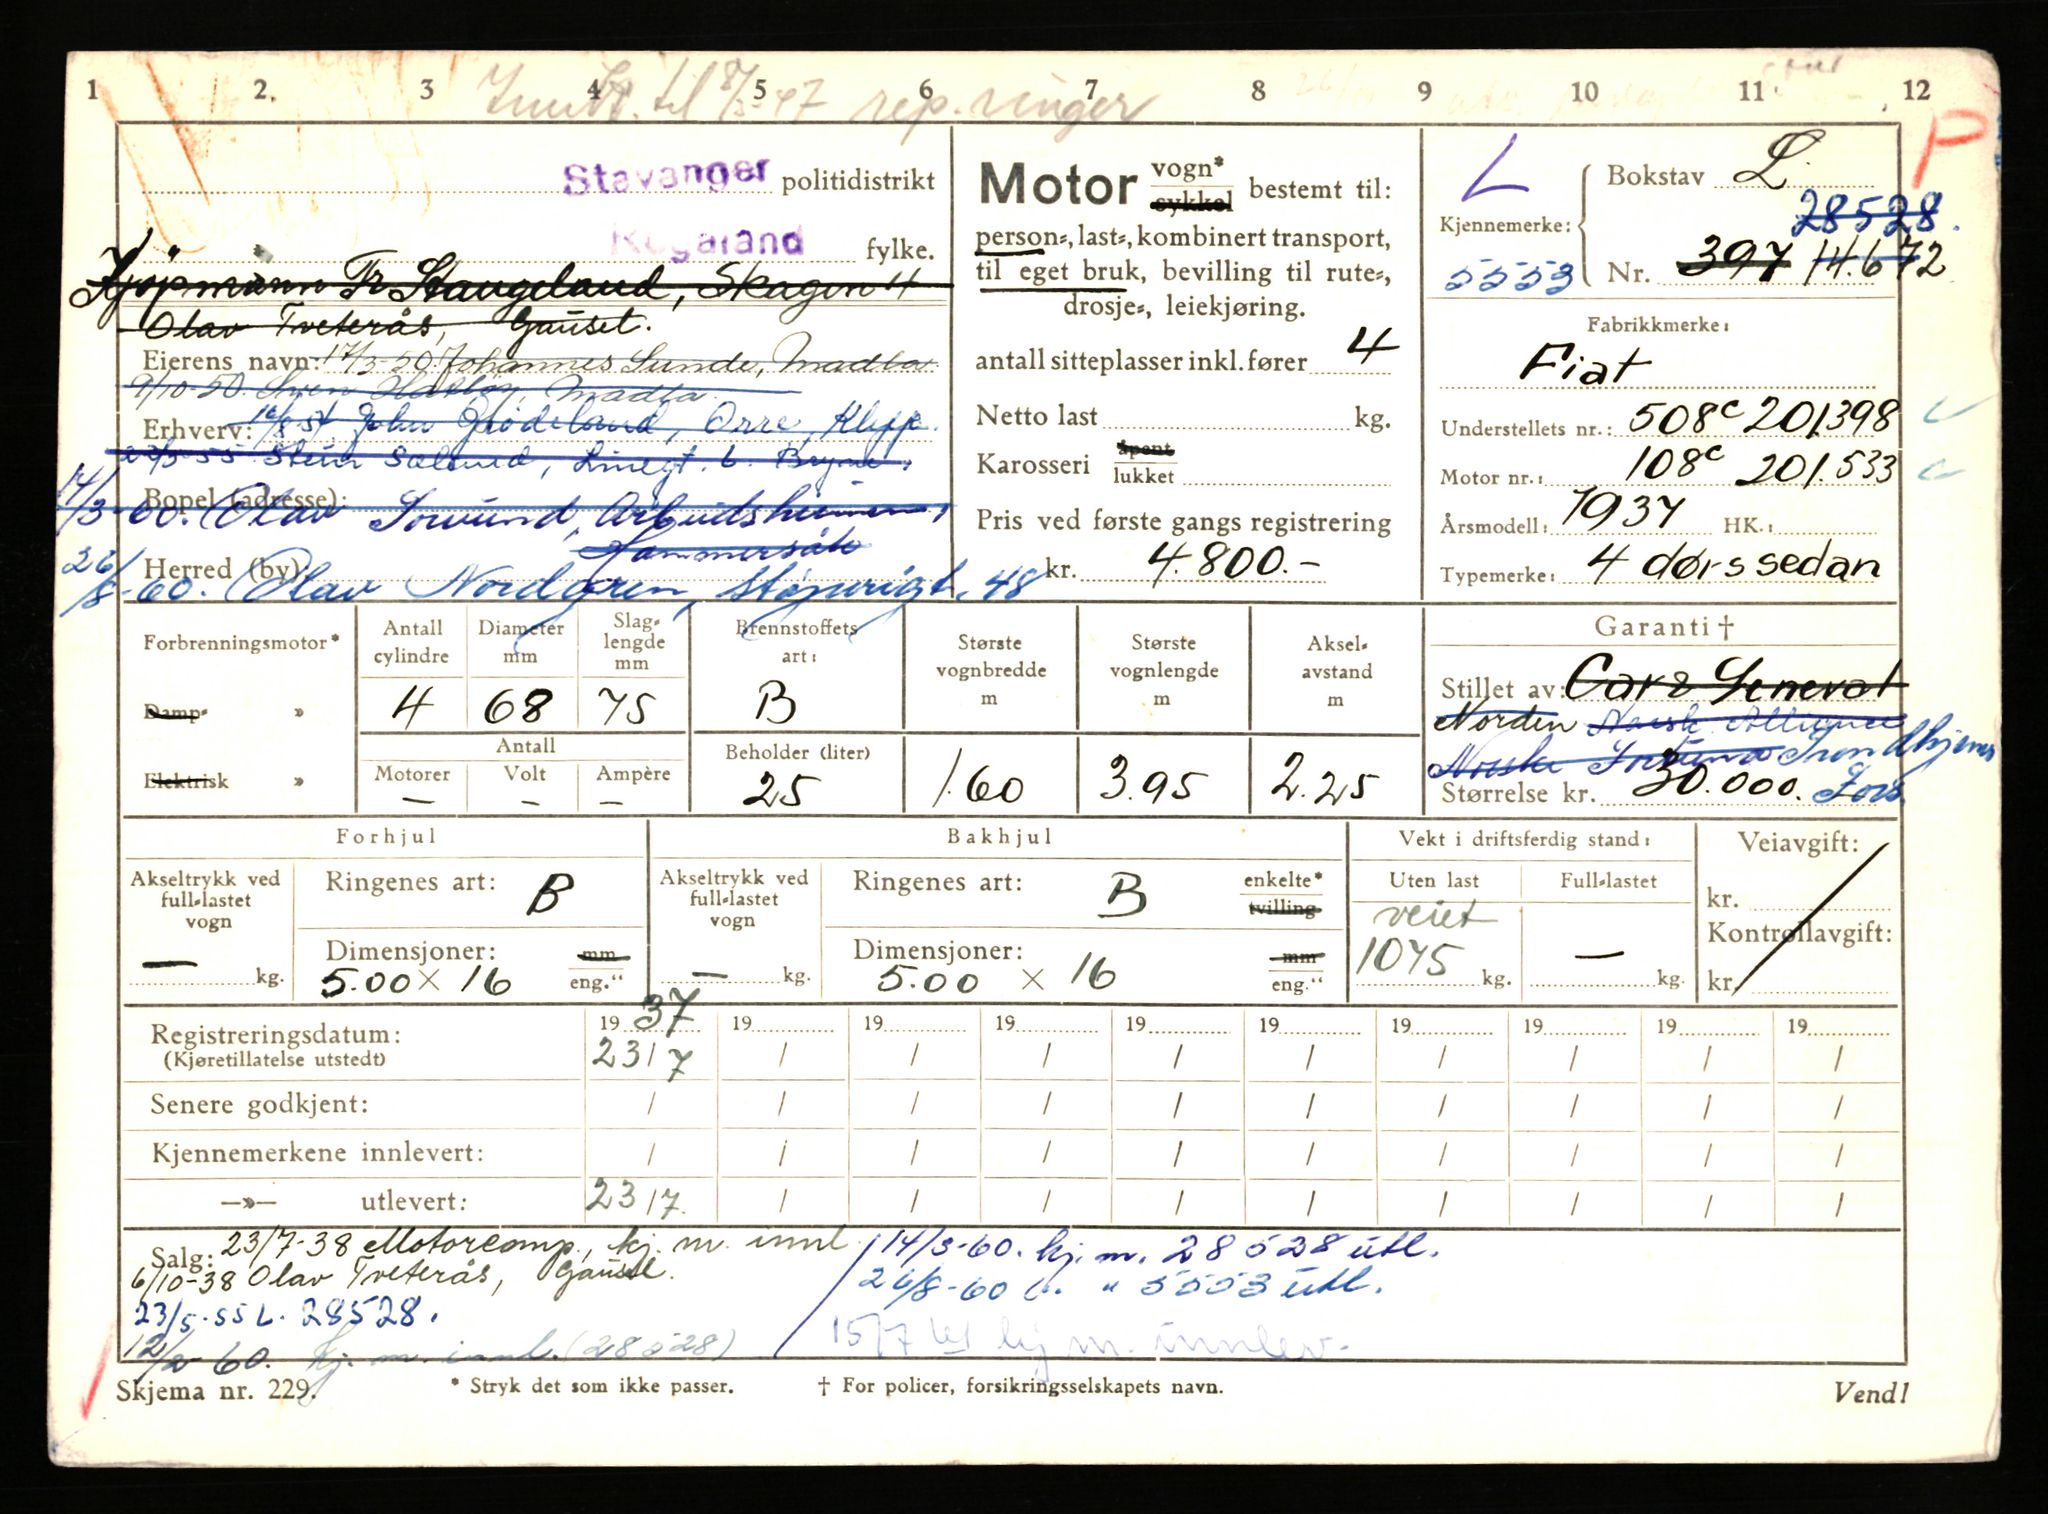 1 2. 3 4 5 6 7 8 9 10 11 12
til 8/5-47 rep. ringer
P
Stavanger politidistrikt
Rogaland fylke.
Kjøpmann Fr Stangeland, Skagen 4
Olav Tveterås, Gausel.
Eierens navn: 17/3-50 Johannes Sunde, Madla
9/10-50 Sven Madla
Erhverv: John Grödeland, Orre, Klepp.
Bryne.
Bopel (adresse):
14/3-60. Olav Sowund, Arbeidsheimen,
Hammersåte
Herred (by):
26/8-60. Olav Nordgren, Støperigt. 48
Motor vogn* sykkel bestemt til:
person-, last-, kombinert transport,
til eget bruk, bevilling til rute-,
drosje-, leiekjøring.
antall sitteplasser inkl. fører 4
Netto last kg.
Karosseri åpent lukket
Pris ved første gangs registrering
kr. 4.800.-
L
Bokstav L.
28528.
Kjennemerke:
5553
Nr. 397 14.672
Fabrikkmerke:
Fiat
Understellets nr.: 508c 201.398
Motor nr.: 108c 201.533
Årsmodell: 1937 HK.:
Typemerke: 4 dørs sedan
Forbrenningsmotor*
Damp- »
Elektrisk »
Antall cylindre
4
Diameter mm
68
Slag-lengde mm
75
Antall
Motorer Volt Ampère
— — —
Brennstoffets art:
B
Beholder (liter)
25
Største vognbredde m
1.60
Største vognlengde m
3.95
Aksel-avstand m
2.25
Garanti †
Stillet av: General
Norden Norsk Alliance
Norske Fortuna Trondhjems
Størrelse kr. 30.000. Fors.
Forhjul
Akseltrykk ved full-lastet vogn
— kg.
Ringenes art: B
Dimensjoner: mm
5.00 × 16 eng.“
Bakhjul
Akseltrykk ved full-lastet vogn
— kg.
Ringenes art: B enkelte* tvilling
Dimensjoner: mm
5.00 × 16 eng.“
Vekt i driftsferdig stand:
Uten last Full-lastet
veiet
1075 kg. — kg.
Veiavgift:
kr.
Kontrollavgift:
kr.
Registreringsdatum: 1937 19 19 19 19 19 19 19 19 19
(Kjøretillatelse utstedt) 23/7 / / / / / / / / /
Senere godkjent: / / / / / / / / / /
Kjennemerkene innlevert: / / / / / / / / / /
—»— utlevert: 23/7. / / / / / / / / /
Salg: 23/7-38 Motorcomp., kj. m. innl.
6/10-38 Olav Tveterås, Gausel.
23/5-55 L. 28528.
12/2-60. kj. m. innl. (28528)
14/3-60. kj. m. 28528 utl.
26/8-60 L. " 5553 utl.
15/7 61 kj m. innlev.
Skjema nr. 229.
* Stryk det som ikke passer.
† For policer, forsikringsselskapets navn.
Vend!